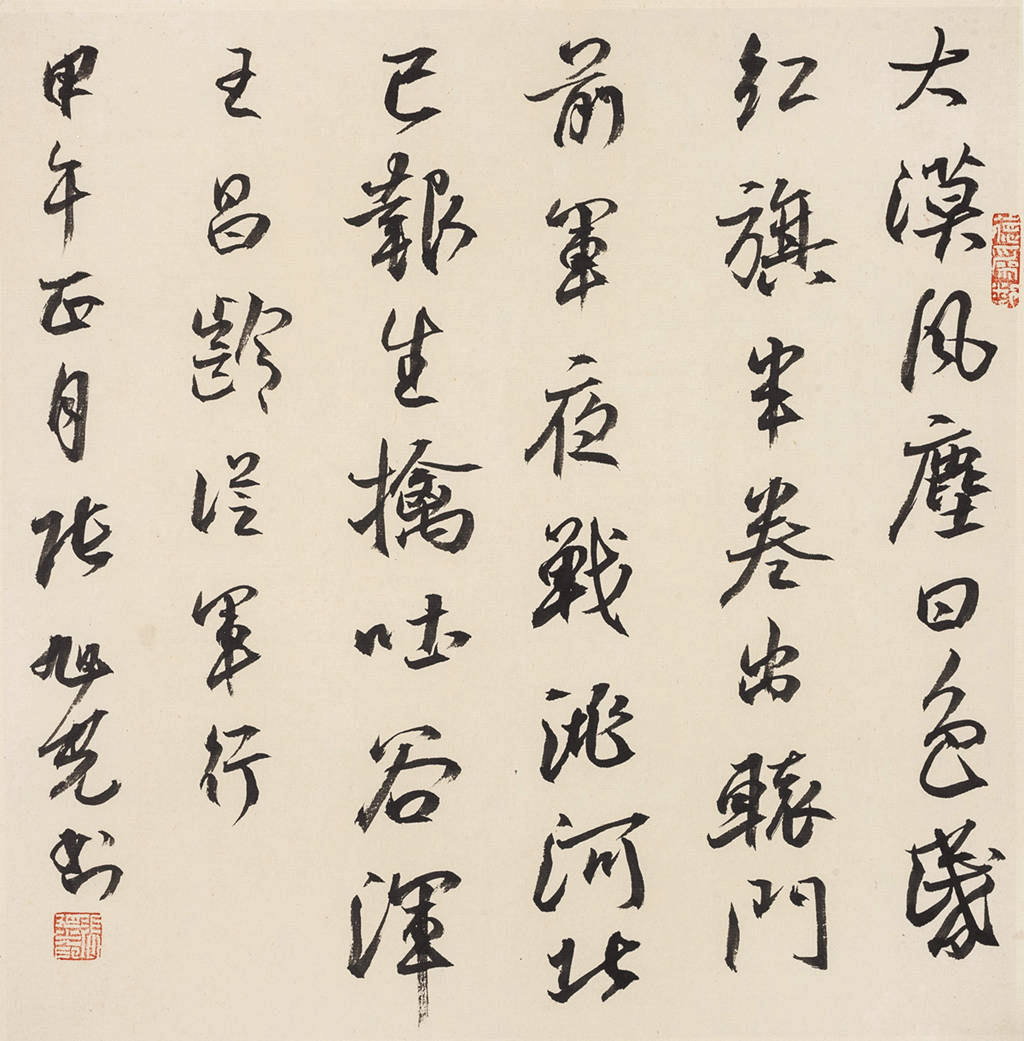 大漠風塵日色昏
紅旗半卷出轅門
前軍夜戰洮河北
已報生擒吐谷渾
王昌齡從軍行
甲午正月張旭光書